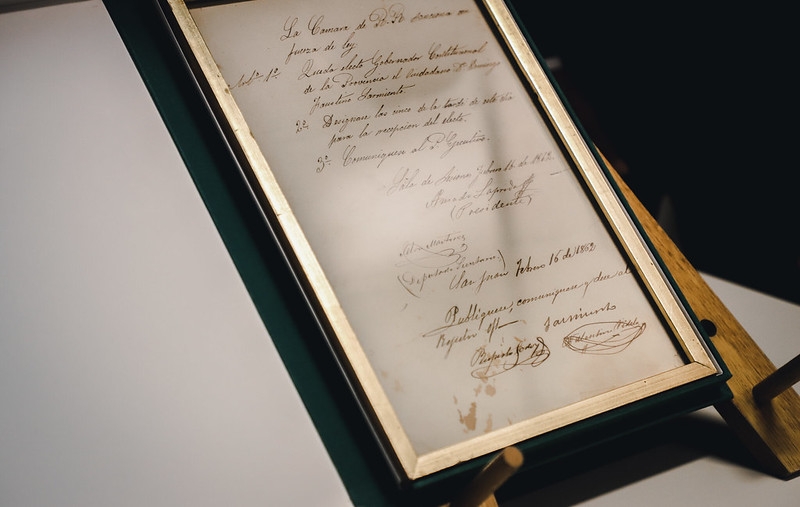 La Camara de RR. sanciona con
fuerza de ley.
Artº 1º. Queda electo Gobernador Constitucional
de la Provincia el Ciudadano Dn Domingo
Faustino Sarmiento
2º. Designase las cinco de la tarde de este dia
para la recepcion del electo.
3º. Comuniquese al P. Ejecutivo.
Sala de Febrero 16 de 1862.
(Presidente)
Martinez
(Diputado Secretario)
San Juan Febrero 16 de 1862
Publiquese, comuniquese y dese al
Registro Ofl.
Sarmiento
Ruperto Godoy
Valentin Videla